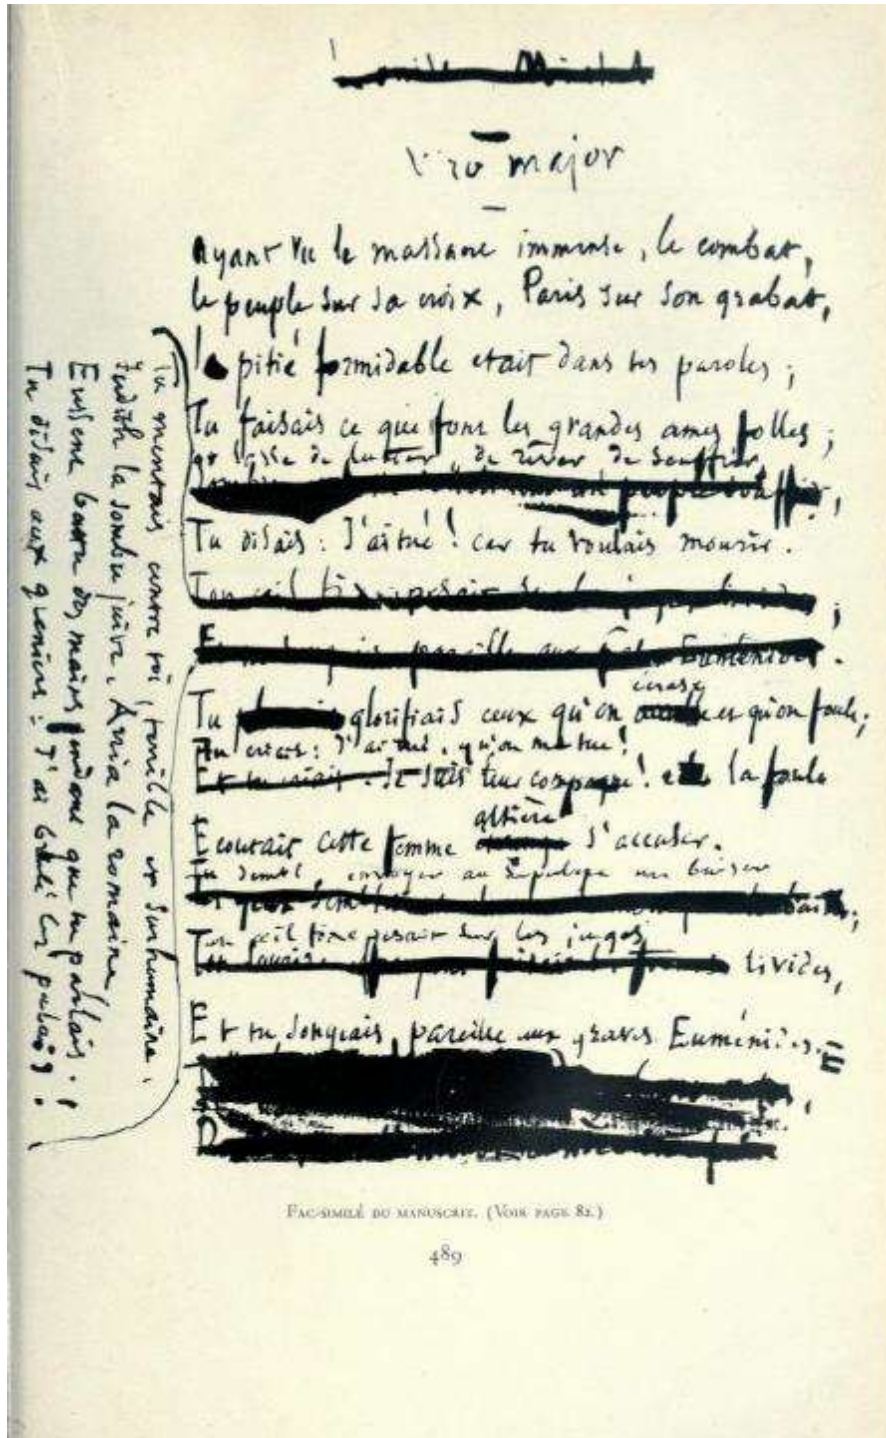 Viro major
Ayant vu le massacre immense, le combat,
le peuple sur sa croix, Paris sur son grabat,
la pitié formidable etait dans tes paroles ;
Tu faisais ce que font les grandes ames folles ;
lasse de lutter, de rêver, de souffrir,
Tu disais : J'ai tué ! car tu voulais mourir.
Ton œil fixe
Euménides.
écrase
Tu glorifiais ceux qu'on et qu'on foule ;
Tu criais : J'ai tué, qu'on me tue !
Je suis leur compagne ! la foule
altière
Ecoutait cette femme s'accuser.
Tu envoyer au sépulcre un baiser
Ton œil fixe pesait sur les juges
livides,
Et tu songeais, pareille aux graves Euménides.
Tu mentais contre toi, terrible et surhumaine.
Judith la sombre juive, Aria la romaine,
Eussent battu des mains pendant que tu parlais.
Tu disais aux greniers : J'ai brulé les palais !
FAC-SIMILÉ DU MANUSCRIT. (VOIR PAGE 82.)
489